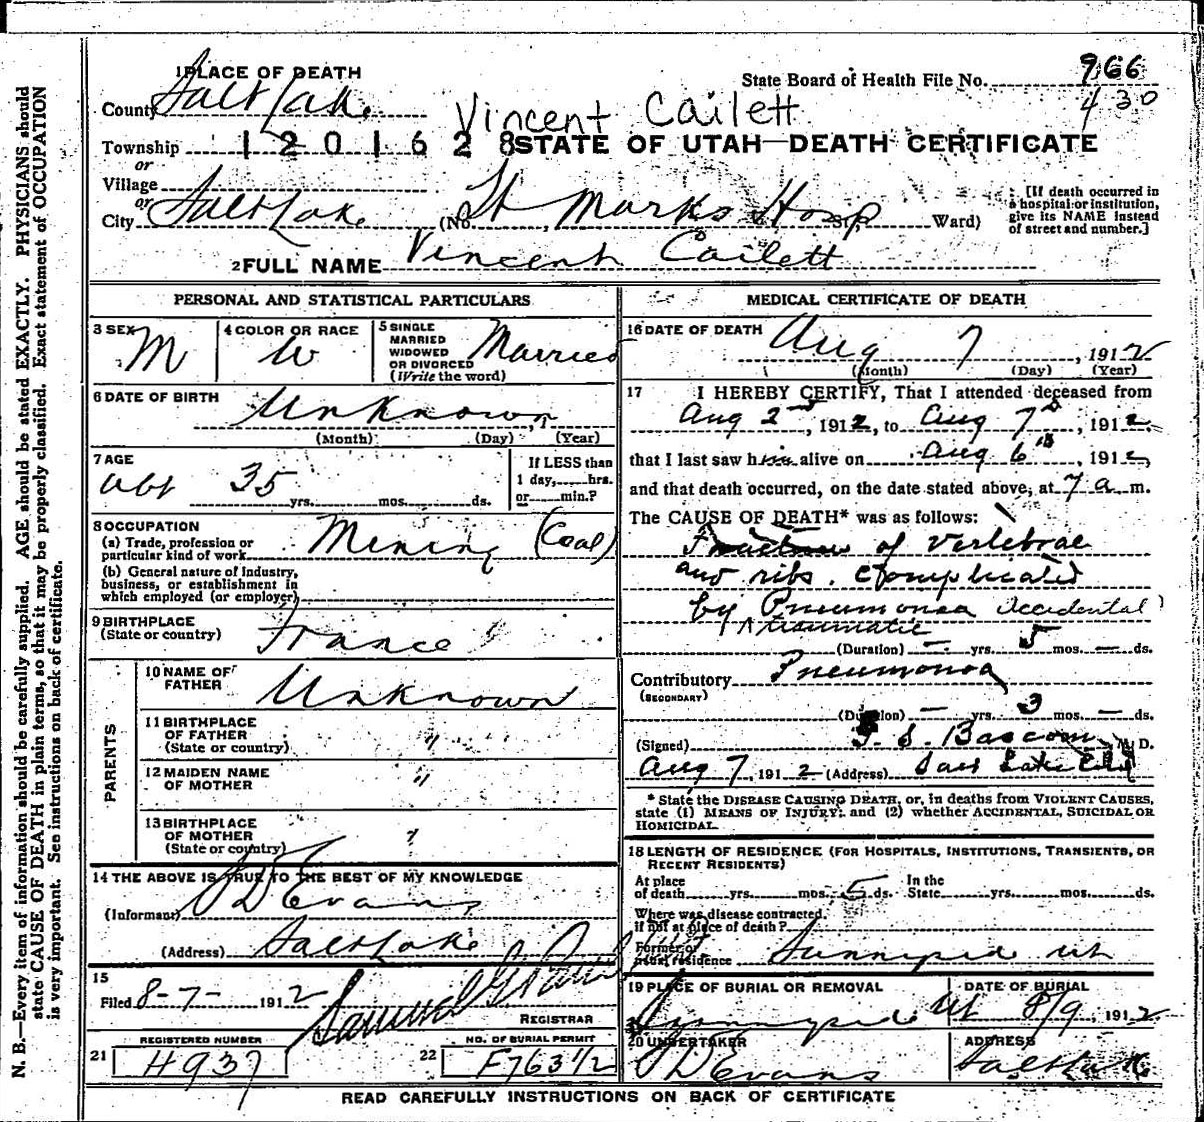 1 PLACE OF DEATH
State Board of Health File No. 966
430
County Salt Lake
Vincent Cailett
Township 1201628 STATE OF UTAH—DEATH CERTIFICATE
or
Village
or
City Salt Lake (No. St Marks Hosp Ward)
[If death occurred in a hospital or institution, give its NAME instead of street and number.]
2 FULL NAME Vincent Cailett
PERSONAL AND STATISTICAL PARTICULARS
3 SEX M
4 COLOR OR RACE W
5 SINGLE MARRIED WIDOWED OR DIVORCED (Write the word) Married
6 DATE OF BIRTH Unknown, 1
(Month) (Day) (Year)
7 AGE abt 35 yrs. mos. ds.
If LESS than 1 day, hrs. or min.?
8 OCCUPATION
(a) Trade, profession or particular kind of work Mining (Coal)
(b) General nature of Industry, business, or establishment in which employed (or employer)
9 BIRTHPLACE (State or country) France
PARENTS
10 NAME OF FATHER Unknown
11 BIRTHPLACE OF FATHER (State or country) "
12 MAIDEN NAME OF MOTHER "
13 BIRTHPLACE OF MOTHER (State or country) "
14 THE ABOVE IS TRUE TO THE BEST OF MY KNOWLEDGE
(Informant) S D Evans
(Address) Salt Lake
15
Filed 8-7- 1912 Samuel G. Paul
REGISTRAR
21 REGISTERED NUMBER H937
22 NO. OF BURIAL PERMIT F763 1/2
MEDICAL CERTIFICATE OF DEATH
16 DATE OF DEATH Aug 7, 1912
(Month) (Day) (Year)
17 I HEREBY CERTIFY, That I attended deceased from
Aug 2nd, 1912, to Aug 7th, 1912,
that I last saw him alive on Aug 6th, 1912,
and that death occurred, on the date stated above, at 7 a m.
The CAUSE OF DEATH* was as follows:
Fracture of Vertebrae
and ribs. Complicated
by Pneumonia Accidental
Traumatic
(Duration) — yrs. 5 mos. — ds.
Contributory Pneumonia
(SECONDARY)
(Duration) — yrs. 3 mos. — ds.
(Signed) F. S. Bascom, M. D.
Aug 7, 1912 (Address) Salt Lake City
* State the DISEASE CAUSING DEATH, or, in deaths from VIOLENT CAUSES, state (1) MEANS OF INJURY; and (2) whether ACCIDENTAL, SUICIDAL OR HOMICIDAL.
18 LENGTH OF RESIDENCE (FOR HOSPITALS, INSTITUTIONS, TRANSIENTS, OR RECENT RESIDENTS)
At place of death yrs. mos. 5 ds. In the State yrs. mos. ds.
Where was disease contracted, if not at place of death?
Former or usual residence Sunnyside Ut
19 PLACE OF BURIAL OR REMOVAL Sunnyside Ut
DATE OF BURIAL 8/9, 1912
20 UNDERTAKER S D Evans
ADDRESS Salt Lake
READ CAREFULLY INSTRUCTIONS ON BACK OF CERTIFICATE
N. B.—Every item of information should be carefully supplied. AGE should be stated EXACTLY. PHYSICIANS should
state CAUSE OF DEATH in plain terms, so that it may be properly classified. Exact statement of OCCUPATION
is very important. See instructions on back of certificate.